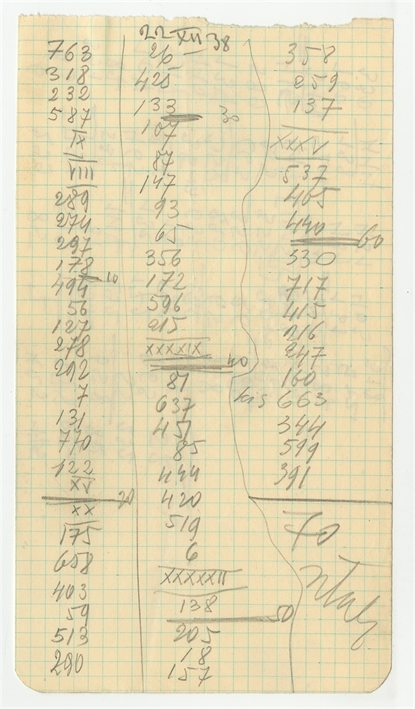 22 XII 38
763
318
232
587
IX
VIII
289
274
297
178
494 10
56
127
278
292
7
131
770
122
XV
20
XX
175
658
403
59
513
290
26
425
133
30
107
87
147
93
65
356
172
596
215
XXXXIX
40
81
637
457
85
444
420
519
6
XXXXXII
138
50
205
18
157
358
259
137
XXXV
537
465
440
60
330
717
415
216
247
160
663
344
599
391
70